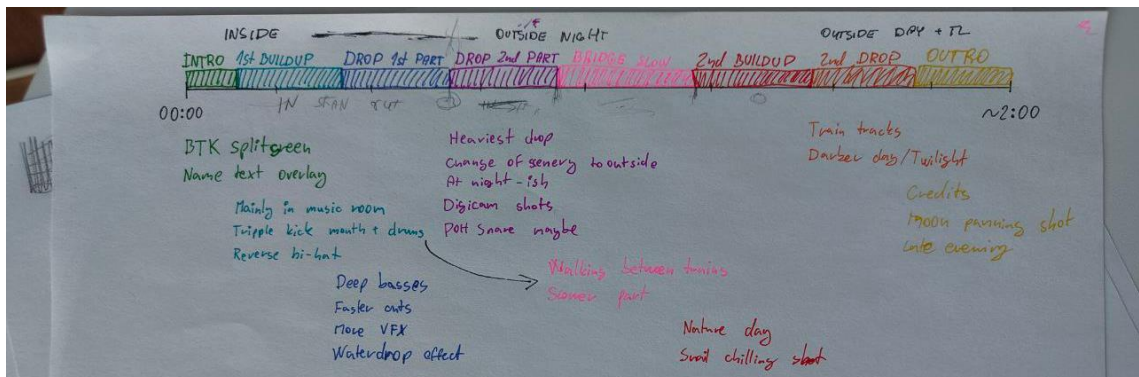 INSIDE OUTSIDE NIGHT OUTSIDE DAY + TL
INTRO 1st BUILDUP DROP 1st PART DROP 2nd PART BRIDGE SLOW 2nd BUILDUP 2nd DROP OUTRO
IN
00:00 ~2:00
BTK splitgreen
Name text overlay
Mainly in music room
Tripple kick mouth + drums
Reverse hi-hat
Deep basses
Faster cuts
More VFX
Waterdrop effect
Heaviest drop
Change of scenery to outside
At night-ish
Digicam shots
POH Snare maybe
Walking between trains
Slower part
Nature day
Snail chilling shot
Train tracks
Darker day/Twilight
Credits
Moon panning shot
Late evening